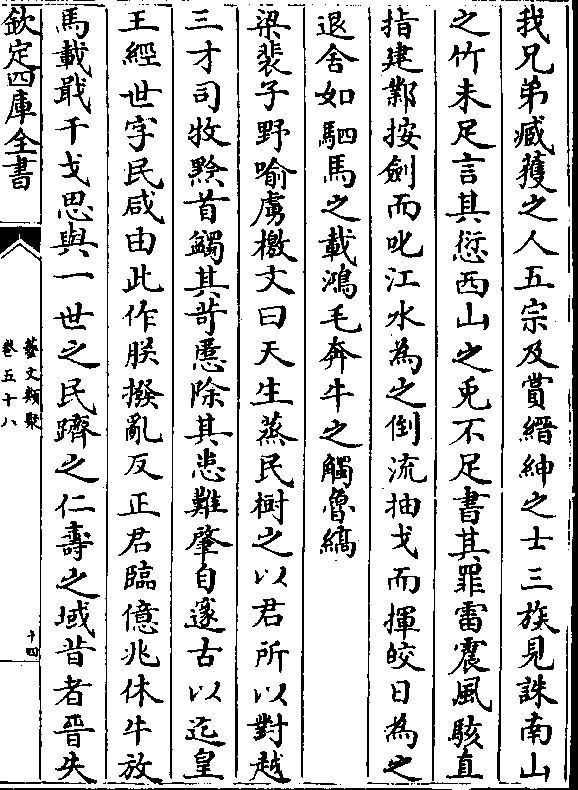 我兄弟臧獲之人五宗及賞縉紳之士三族見誅南山
之竹未足言其愆西山之兎不足書其罪雷震風駭直
指建鄴按劍而叱江水為之倒流抽戈而揮皎日為之
退舍如駟馬之載鴻毛奔牛之觸魯縞
梁裴子野喻虜檄文曰天生蒸民樹之以君所以對越
三才司牧黔首蠲其苛慝除其患難肇自邃古以迄皇
王經世字民咸由此作朕撥亂反正君臨億兆休牛放
馬載戢干戈思與一世之民躋之仁壽之域昔者晉失
欽定四庫全書
藝文類聚
卷五十八
十四